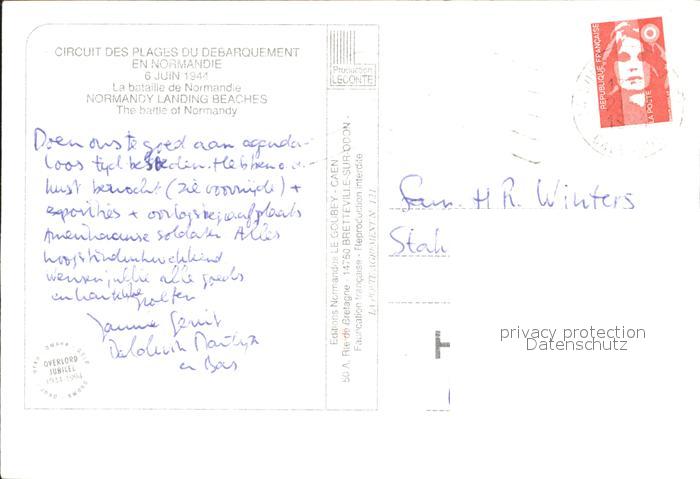 CIRCUIT DES PLAGES DU DEBARQUEMENT
EN NORMANDIE
6 JUIN 1944
La bataille de Normandie
NORMANDY LANDING BEACHES
The battle of Normandy
Production
LECONTE
REPUBLIQUE FRANÇAISE
LA POSTE
Doen ons te goed aan agenda-
loos tijd besteden. Hebben o.a.
kust bezocht (zie voorzijde) +
exposities + oorlogsbegraafplaats
Amerikaanse soldaten Alles
hoogstindrukwekkend
wensen jullie alle goeds
en hartelijke groeten
Gerrit
en Bas
OVERLORD
JUBILEE
1944-1994
Editions Normandes LE GOUBEY - CAEN
50 A, Rte de Bretagne - 14760 BRETTEVILLE-SUR-ODON -
Fabrication française - Reproduction interdite
LA POSTE AGREMENT N° 121
Fam. H.R. Winters
Stah
privacy protection
Datenschutz